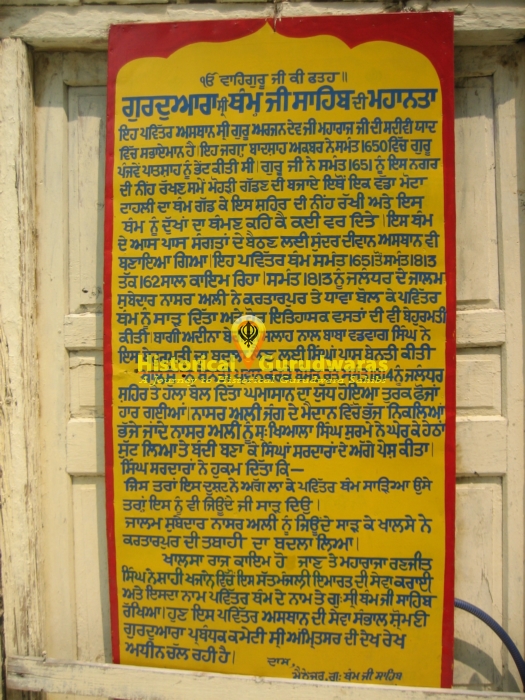 ੴ ਵਾਹਿਗੁਰੂ ਜੀ ਕੀ ਫਤਹ ॥
ਗੁਰਦੁਆਰਾ ਸ੍ਰੀ ਥੰਮ੍ਹ ਜੀ ਸਾਹਿਬ ਦੀ ਮਹਾਨਤਾ
ਇਹ ਪਵਿੱਤਰ ਅਸਥਾਨ ਸ੍ਰੀ ਗੁਰੂ ਅਰਜਨ ਦੇਵ ਜੀ ਮਹਾਰਾਜ ਜੀ ਦੀ ਸਦੀਵੀ ਯਾਦ
ਵਿੱਚ ਸਭਾਏਮਾਨ ਹੈ। ਇਹ ਜਗ੍ਹਾ ਬਾਦਸ਼ਾਹ ਅਕਬਰ ਨੇ ਸਮੰਤ 1650 ਵਿੱਚ ਗੁਰੂ
ਪੰਜਵੇਂ ਪਾਤਸ਼ਾਹ ਨੂੰ ਭੇਂਟ ਕੀਤੀ ਸੀ। ਗੁਰੂ ਜੀ ਨੇ ਸਮੰਤ 1651 ਨੂੰ ਇਸ ਨਗਰ
ਦੀ ਨੀਂਹ ਰੱਖਣ ਸਮੇਂ ਮੋਹੜੀ ਗੱਡਣ ਦੀ ਬਜਾਏ ਇਥੋਂ ਇਕ ਵੱਡਾ ਮੋਟਾ
ਟਾਹਲੀ ਦਾ ਥੰਮ ਗੱਡ ਕੇ ਇਸ ਸ਼ਹਿਰ ਦੀ ਨੀਂਹ ਰੱਖੀ ਅਤੇ ਇਸ
ਥੰਮ ਨੂੰ ਦੁੱਖਾਂ ਦਾ ਥੰਮਣ ਕਹਿ ਕੇ ਕਈ ਵਰ ਦਿੱਤੇ। ਇਸ ਥੰਮ
ਦੇ ਆਸ ਪਾਸ ਸੰਗਤਾਂ ਦੇ ਬੈਠਣ ਲਈ ਸੁੰਦਰ ਦੀਵਾਨ ਅਸਥਾਨ ਵੀ
ਬਣਾਇਆ ਗਿਆ। ਇਹ ਪਵਿੱਤਰ ਥੰਮ ਸਮੰਤ 1651 ਤੋ ਸਮੰਤ 1813
ਤਕ 162 ਸਾਲ ਕਾਇਮ ਰਿਹਾ। ਸਮੰਤ 1813 ਨੂੰ ਜਲੰਧਰ ਦੇ ਜਾਲਮ
ਸੂਬੇਦਾਰ ਨਾਸਰ ਅਲੀ ਨੇ ਕਰਤਾਰਪੁਰ ਤੇ ਧਾਵਾ ਬੋਲ ਕੇ ਪਵਿੱਤਰ
ਥੰਮ ਨੂੰ ਸਾੜ ਦਿੱਤਾ ਅਤੇ ਇਤਿਹਾਸਕ ਵਸਤਾਂ ਦੀ ਵੀ ਬੇਹੁਰਮਤੀ
ਕੀਤੀ। ਬਾਗੀ ਅਦੀਨਾ ਸਲਾਹ ਨਾਲ ਬਾਬਾ ਵਡਭਾਗ ਸਿੰਘ ਨੇ
ਲਈ ਸਿੰਘਾਂ ਪਾਸ ਬੇਨਤੀ ਕੀਤੀ
ਨੂੰ ਜਲੰਧਰ
ਸ਼ਹਿਰ ਤੇ ਹੱਲਾ ਬੋਲ ਦਿੱਤਾ ਘਮਾਸਾਨ ਦਾ ਯੁੱਧ ਹੋਇਆ ਤੁਰਕ ਫੌਜਾਂ
ਹਾਰ ਗਈਆਂ। ਨਾਸਰ ਅਲੀ ਜੰਗ ਦੇ ਮੈਦਾਨ ਵਿੱਚੋਂ ਭੱਜ ਨਿਕਲਿਆ
ਭੱਜੇ ਜਾਂਦੇ ਨਾਸਰ ਅਲੀ ਨੂੰ ਸ: ਖਿਆਲਾ ਸਿੰਘ ਸੂਰਮੇ ਨੇ ਘੇਰ ਕੇ ਹੇਠਾਂ
ਸੁੱਟ ਲਿਆ ਤੇ ਬੰਦੀ ਬਣਾ ਕੇ ਸਿੰਘਾਂ ਸਰਦਾਰਾਂ ਦੇ ਅੱਗੇ ਪੇਸ਼ ਕੀਤਾ।
ਸਿੰਘ ਸਰਦਾਰਾਂ ਨੇ ਹੁਕਮ ਦਿੱਤਾ ਕਿ—
ਜਿਸ ਤਰਾਂ ਇਸ ਦੁਸ਼ਟ ਨੇ ਅੱਗ ਲਾ ਕੇ ਪਵਿੱਤਰ ਥੰਮ ਸਾੜਿਆ ਉਸੇ
ਤਰਾਂ ਇਸ ਨੂੰ ਵੀ ਜਿਉਂਦੇ ਜੀ ਸਾੜ ਦਿਉ।
ਜਾਲਮ ਸੂਬੇਦਾਰ ਨਾਸਰ ਅਲੀ ਨੂੰ ਜਿਉਂਦੇ ਸਾੜ ਕੇ ਖਾਲਸੇ ਨੇ
ਕਰਤਾਰਪੁਰ ਦੀ ਤਬਾਹੀ ਦਾ ਬਦਲਾ ਲਿਆ।
ਖਾਲਸਾ ਰਾਜ ਕਾਇਮ ਹੋ ਜਾਣ ਤੇ ਮਹਾਰਾਜਾ ਰਣਜੀਤ
ਸਿੰਘ ਨੇ ਸ਼ਾਹੀ ਖਜਾਨੇ ਵਿੱਚੋਂ ਇਸ ਸੱਤ ਮੰਜਲੀ ਇਮਾਰਤ ਦੀ ਸੇਵਾ ਕਰਾਈ
ਅਤੇ ਇਸਦਾ ਨਾਮ ਪਵਿੱਤਰ ਥੰਮ ਦੇ ਨਾਮ ਤੇ ਗੁ: ਸ੍ਰੀ ਥੰਮ ਜੀ ਸਾਹਿਬ
ਰੱਖਿਆ। ਹੁਣ ਇਸ ਪਵਿੱਤਰ ਅਸਥਾਨ ਦੀ ਸੇਵਾ ਸੰਭਾਲ ਸ਼੍ਰੋਮਣੀ
ਗੁਰਦੁਆਰਾ ਪ੍ਰਬੰਧਕ ਕਮੇਟੀ ਸ੍ਰੀ ਅਮ੍ਰਿਤਸਰ ਦੀ ਦੇਖ ਰੇਖ
ਅਧੀਨ ਚੱਲ ਰਹੀ ਹੈ।
ਦਾਸ,
ਮੈਨੇਜਰ, ਗੁ: ਥੰਮ ਜੀ ਸਾਹਿਬ
Historical Gurudwaras
A Journey to Historical Gurudwara Sahibs